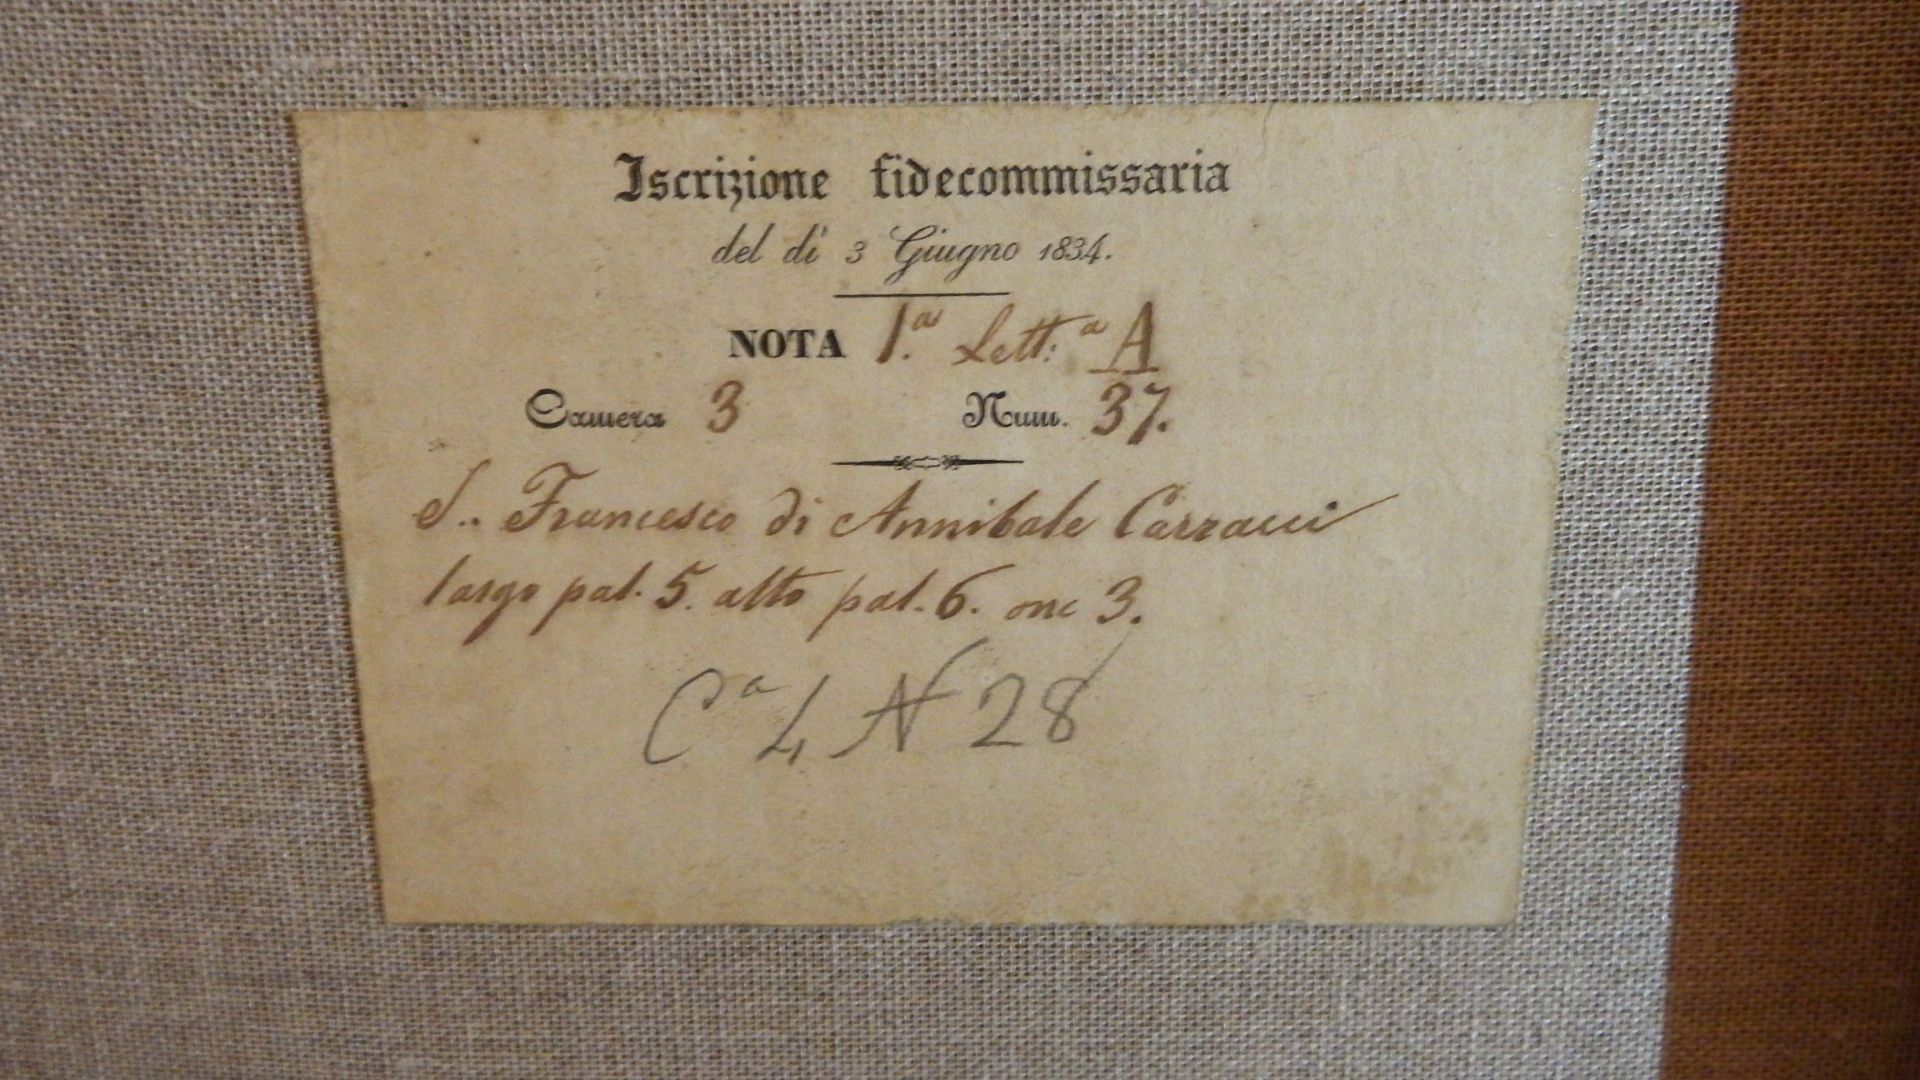 Iscrizione fidecommissaria
del dì 3 Giugno 1834.
NOTA 1.a Lett:a A
Camera 3 Num. 37.
S.. Francesco di Annibale Carracci
largo pal. 5. alto pal. 6. onc 3.
Ca 4 N 28